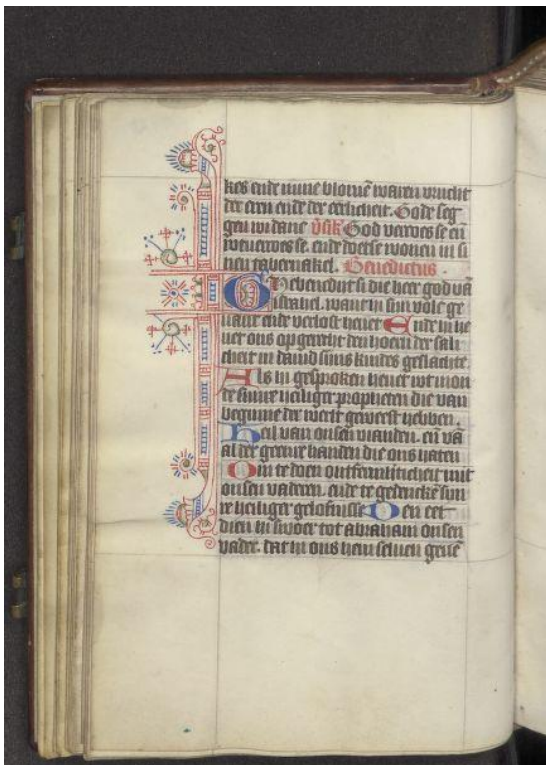 kes ende mine bloemē waren vrucht
der eren ende der eerlicheit. Gode seg
gen wi dane v̄sik God vercoes se en̄
wtuercoes se. ende doetse wonen in si
nen tabernakel. Benedictus.
Gebenedijt si die heer god vā
israhel. want hi sijn volc ge
ende verlost heuet Ende hi he
uet ons op gerecht den hoern der sali
cheit in dauid sijns kindes geslachte
Als hi gesproken heuet wt mon
de sinre heiliger propheten die van
beginne der werlt geweest hebben.
Heil van onsen vianden. en̄ vā
al der geenre handen die ons haten
Om te doen ontfermhticheit mit
onsen vaderen. ende te gedenckē sijn
re heiliger gelofnisse Den eet
dien hi swoer tot abraham onsen
vader. dat hi ons hem seluen geuē